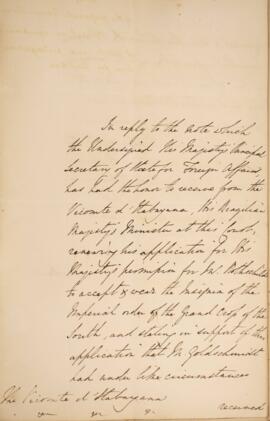 In reply to the Note which
the Undersigned His Majesty's Principal
Secretary of State for Foreign Affairs
has had the honor to receive from the
Vicomte d'Itabayana, His Brazilian
Majesty's Minister at this Court,
renewing his application for His
Majesty's permission for Mr. Rothschild
to accept & wear the Insignia of the
Imperial order of the Grand Cross of the
South, and stating in support of this
application that Mr. Goldschmidt
had under like circumstances
received
The Vicomte d'Itabayana